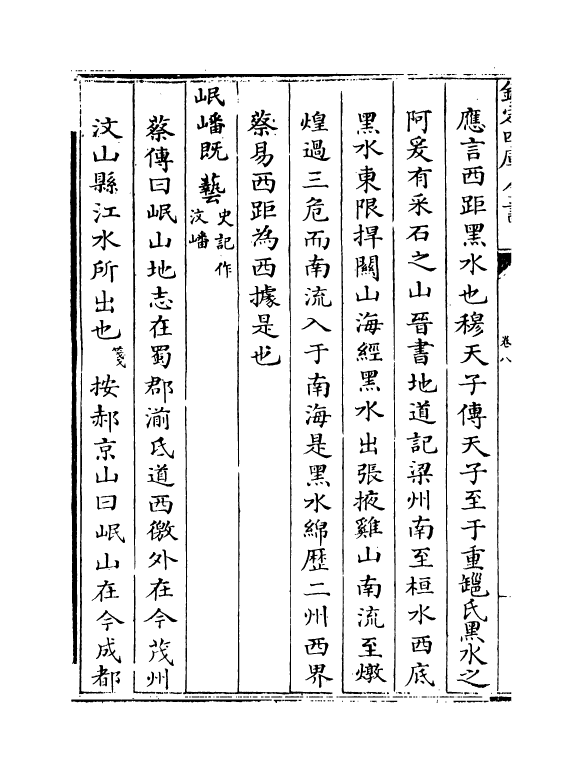 欽定四庫全書
卷八
應言西距黑水也穆天子傳天子至于重䍋氏黑水之
阿爰有采石之山晉書地道記梁州南至桓水西底
黑水東限捍關山海經黑水出張掖雞山南流至燉
煌過三危而南流入于南海是黑水綿歷二州西界
蔡易西距為西據是也
岷嶓既藝史記作汶嶓
蔡傳曰岷山地志在蜀郡湔氐道西徼外在今茂州
汶山縣江水所出也箋按郝京山曰岷山在今成都